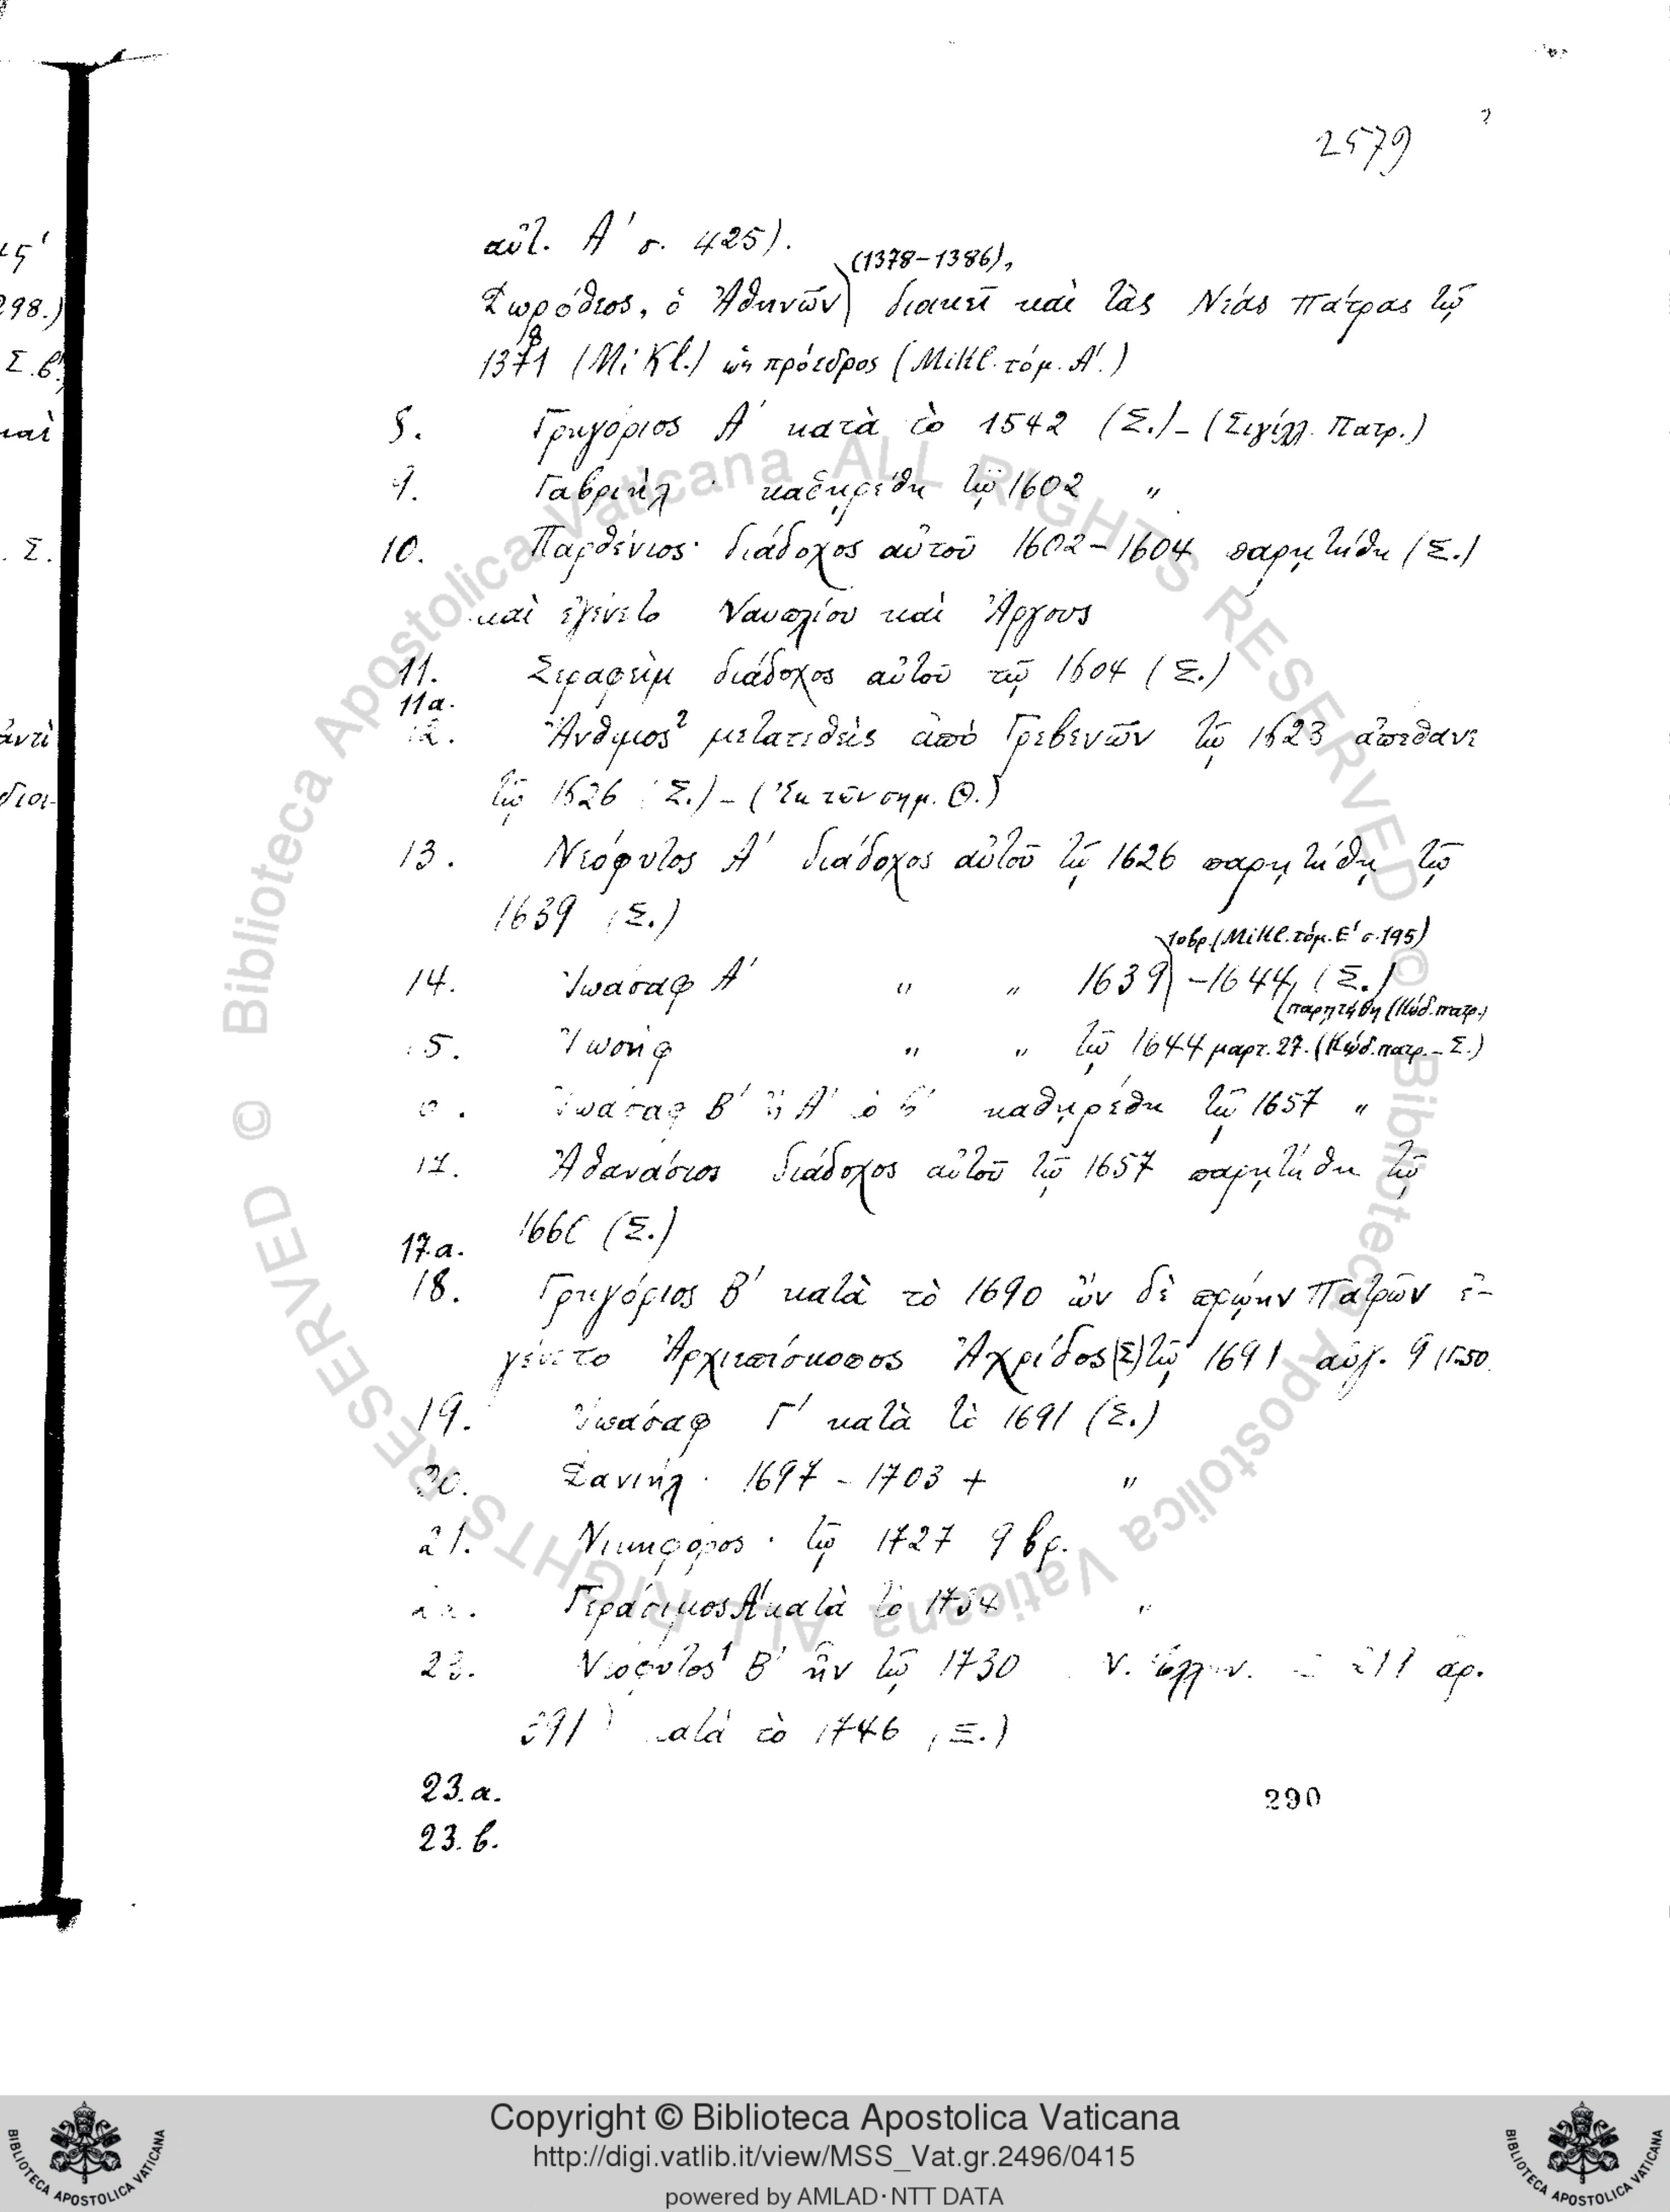 2579
αὐτ. Α΄ σ. 425).
(1378-1386),
Δωρόθεος, ὁ Ἀθηνῶν διακεῖ καὶ τὰς Νέας Πάτρας τῷ
1371 (Mikl.) ὡς πρόεδρος (Mikl. τόμ. Α΄.)
8. Γρηγόριος Α΄ κατὰ τὸ 1542 (Σ.) - (Σιγίλλ. Πατρ.)
9. Γαβριὴλ · καθῃρέθη τῷ 1602 "
10. Παρθένιος· διάδοχος αὐτοῦ 1602-1604 παρῃτήθη (Σ.)
καὶ ἐγένετο Ναυπλίου καὶ Ἄργους
11. Σεραφεὶμ διάδοχος αὐτοῦ τῷ 1604 (Σ.)
11α.
12. Ἄνθιμος² μετατεθεὶς ἀπὸ Γρεβενῶν τῷ 1623 ἀπέθανε
τῷ 1626 (Σ.) - (Ἐκ τῶν σημ. Θ.)
13. Νεόφυτος Α΄ διάδοχος αὐτοῦ τῷ 1626 παρῃτήθη τῷ
1639 (Σ.)
10βρ. (Mikl. τόμ. Ε΄ σ. 195)
14. Ἰωάσαφ Α΄ " " 1639 - 1644, (Σ.)
παρητήθη (Κώδ. πατρ.)
15. Ἰωσὴφ " " τῷ 1644 μαρτ. 27. (Κώδ. πατρ. - Σ.)
Ἰωάσαφ Β΄ ἢ Α΄ ὁ Β΄ καθῃρέθη τῷ 1657 "
17. Ἀθανάσιος διάδοχος αὐτοῦ τῷ 1657 παρῃτήθη τῷ
1660 (Σ.)
17.α.
18. Γρηγόριος Β΄ κατὰ τὸ 1690 ὢν δὲ πρώην Πατρῶν ἐ-
γένετο Ἀρχιεπίσκοπος Ἀχρίδος (Σ) τῷ 1691 αὐγ. 9
19. Ἰωάσαφ Γ΄ κατὰ τὸ 1691 (Σ.)
20. Δανιὴλ · 1697 - 1703 + "
21. Νικηφόρος · τῷ 1727 9βρ.
22. Γεράσιμος Α΄ κατὰ τὸ 1734 "
23. Νεόφυτος¹ Β΄ ἦν τῷ 1730 Ν. Ἑλλην. 211 ἀρ.
391) κατὰ τὸ 1746 (Σ.)
23.α.
23.β.
290
ις΄
298.)
Σ.β.
καὶ
. Σ.
ἀντὶ
διοι-
© Biblioteca Apostolica Vaticana ALL RIGHTS RESERVED
© Biblioteca Apostolica Vaticana ALL RIGHTS RESERVED
Copyright © Biblioteca Apostolica Vaticana
http://digi.vatlib.it/view/MSS_Vat.gr.2496/0415
powered by AMLAD·NTT DATA
BIBLIOTECA APOSTOLICA VATICANA
BIBLIOTECA APOSTOLICA VATICANA